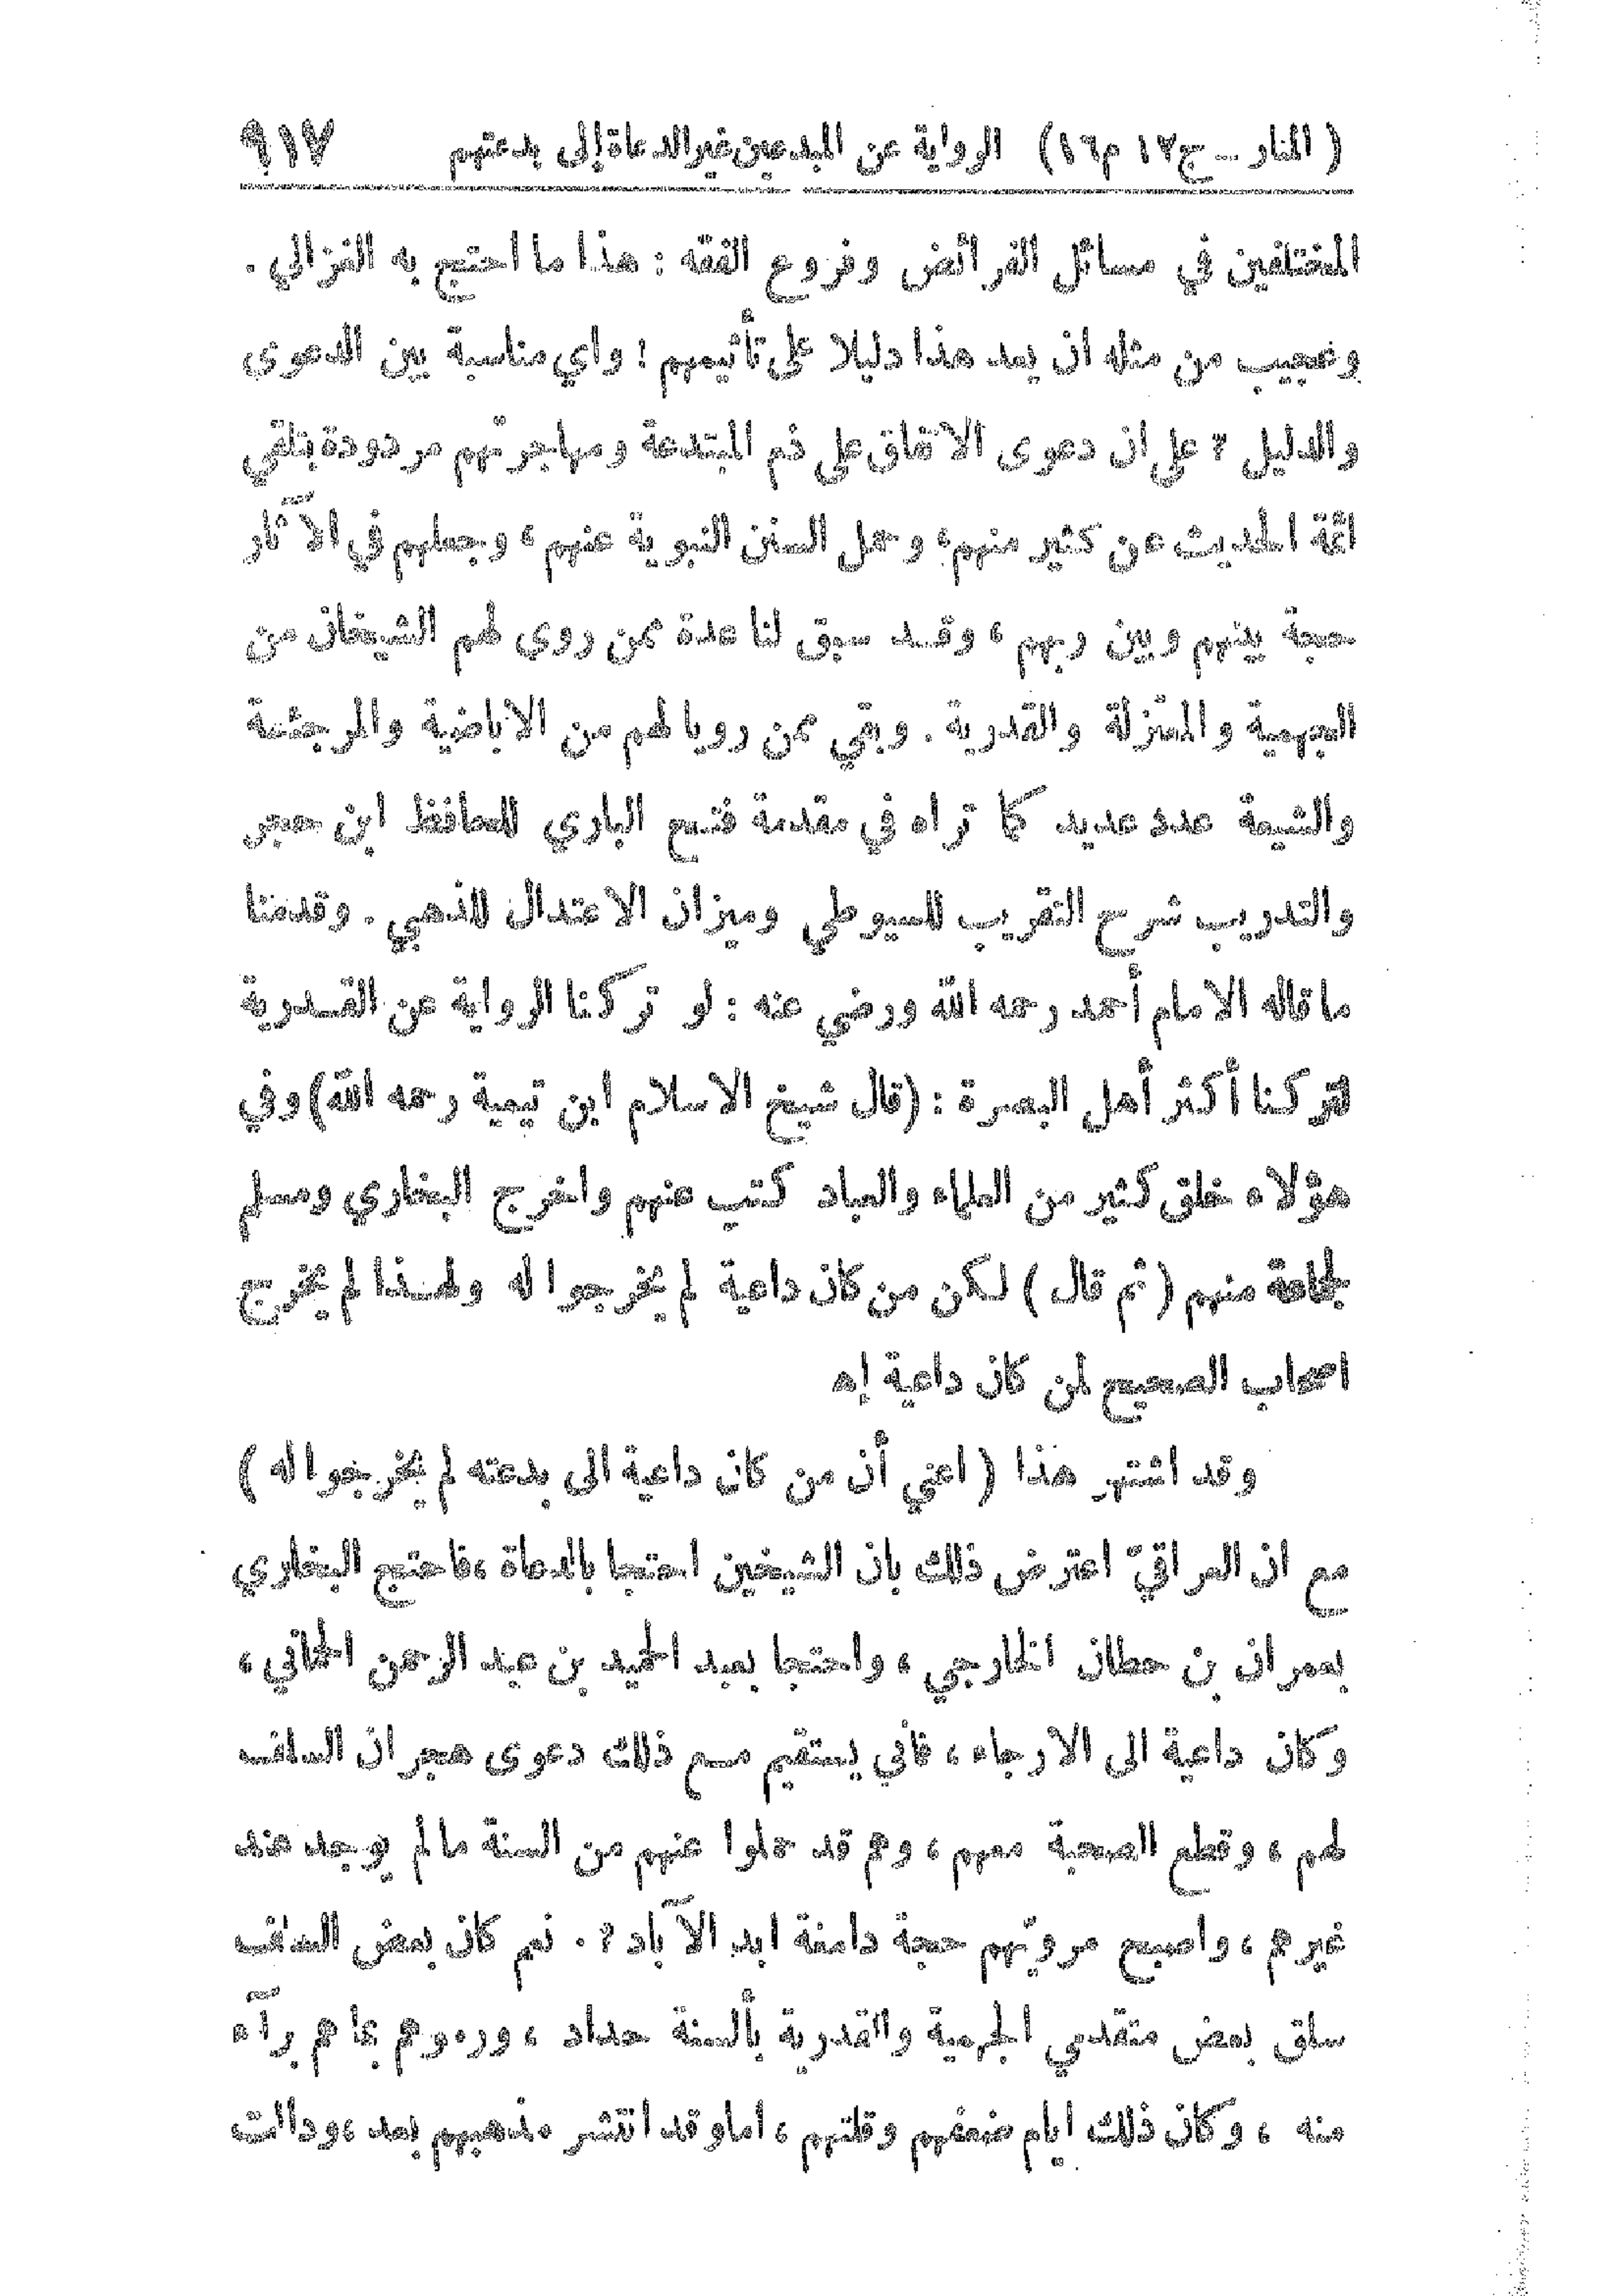 ( المنار – ج١٢ م١٦ ) الرواية عن المبدعين غير الدعاة إلى بدعتهم ٩١٧
المختلفين في مسائل الفرائض وفروع الفقه : هذا ما احتج به الغزالي .
وعجيب من مثله ان يعد هذا دليلا على تأثيمهم ! واي مناسبة بين الدعوى
والدليل ؟ على ان دعوى الاتفاق على ذم المبتدعة ومهاجرتهم مردودة بتلقي
ائمة الحديث عن كثير منهم ، وحمل السنن النبوية عنهم ، وجعلهم في الآثار
حجة بينهم وبين ربهم ، وقد سبق لنا عدة ممن روى لهم الشيخان من
الجهمية والمعتزلة والقدرية . وبقي ممن رويا لهم من الاباضية والمرجئة
والشيعة عدد عديد كما تراه في مقدمة فتح الباري للحافظ ابن حجر
والتدريب شرح التقريب للسيوطي وميزان الاعتدال للذهبي . وقدمنا
ما قاله الامام أحمد رحمه الله ورضي عنه : لو تركنا الرواية عن القدرية
لتركنا أكثر أهل البصرة : (قال شيخ الاسلام ابن تيمية رحمه الله) وفي
هؤلاء خلق كثير من العلماء والعباد كتب عنهم واخرج البخاري ومسلم
لجماعة منهم ( ثم قال ) لكن من كان داعية لم يخرجوا له ولهذا لم يخرج
اصحاب الصحيح لمن كان داعية إه
وقد اشتهر هذا ( اعني أن من كان داعية الى بدعته لم يخرجوا له )
مع ان العراقيّ اعترض ذلك بان الشيخين احتجا بالدعاة ، فاحتج البخاري
بعمران بن حطان الخارجي ، واحتجا بعبد الحميد بن عبد الرحمن الحماني ،
وكان داعية الى الارجاء ، فأنى يستقيم مع ذلك دعوى هجران السلف
لهم ، وقطع الصحبة معهم ، وهم قد حملوا عنهم من السنة ما لم يوجد عند
غيرهم ، واصبح مرويّهم حجة دامغة ابد الآباد ؟ . نعم كان بعض السلف
سلق بعض متقدمي الجهمية والقدرية بألسنة حداد ، ورموهم بما هم برآء
منه ، وكان ذلك ايام ضعفهم وقلتهم ، اما وقد انتشر مذهبهم بعد ، ودالت